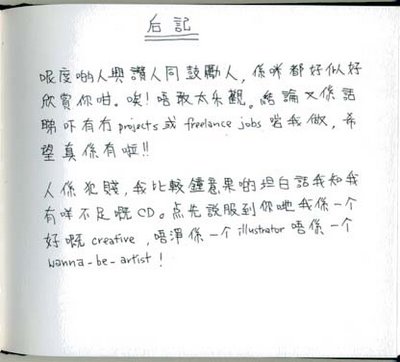 后記
呢度啲人興讚人同鼓勵人,係咪都好似好
欣賞你咁。唉!唔敢太乐觀。結論又係話
睇吓有冇 projects 或 freelance jobs 啱我做,希
望真係有啦!!
人係犯賤,我比較鐘意果啲坦白話我知我
有咩不足嘅CD。点先説服到你哋我係一个
好嘅 creative,唔淨係一个 illustrator 唔係一个
wanna-be-artist!